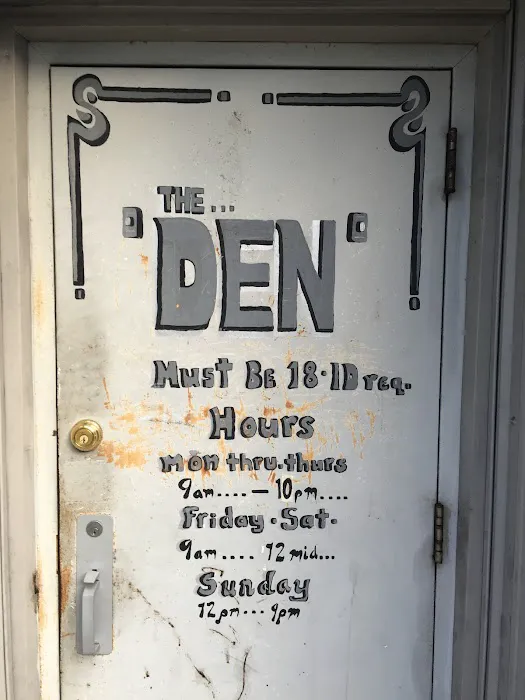 THE...
DEN
Must BE 18·ID req.
Hours
mon thru.thurs
9am....—10pm....
Friday·Sat·
9am....12mid...
Sunday
12pm...9pm